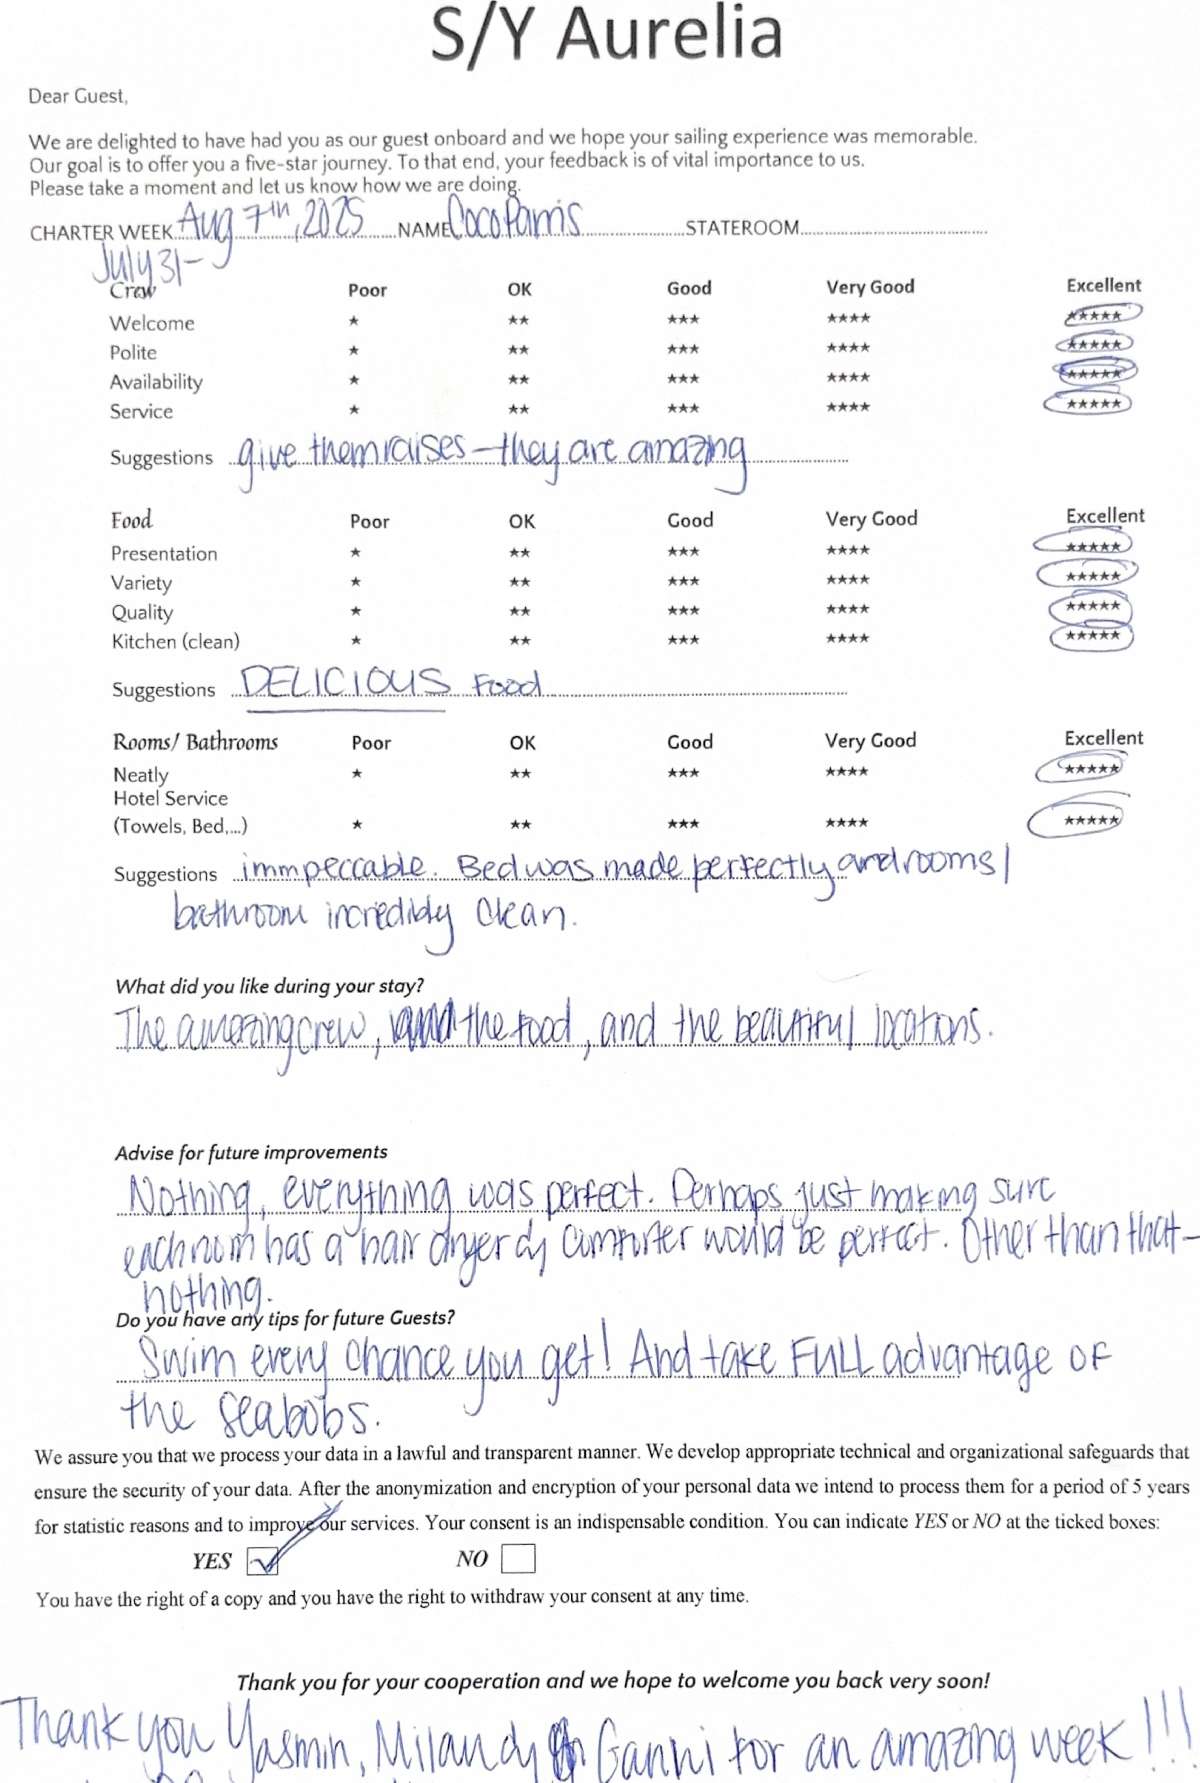 S/Y Aurelia
Dear Guest,
We are delighted to have had you as our guest onboard and we hope your sailing experience was memorable.
Our goal is to offer you a five-star journey. To that end, your feedback is of vital importance to us.
Please take a moment and let us know how we are doing.
CHARTER WEEK Aug 7th, 2025 NAME Coco Parris STATEROOM
July 31-
Crew Poor OK Good Very Good Excellent
Welcome ★ ★★ ★★★ ★★★★ ★★★★★
Polite ★ ★★ ★★★ ★★★★ ★★★★★
Availability ★ ★★ ★★★ ★★★★ ★★★★★
Service ★ ★★ ★★★ ★★★★ ★★★★★
Suggestions give them raises - they are amazing
Food Poor OK Good Very Good Excellent
Presentation ★ ★★ ★★★ ★★★★ ★★★★★
Variety ★ ★★ ★★★ ★★★★ ★★★★★
Quality ★ ★★ ★★★ ★★★★ ★★★★★
Kitchen (clean) ★ ★★ ★★★ ★★★★ ★★★★★
Suggestions DELICIOUS Food
Rooms/ Bathrooms Poor OK Good Very Good Excellent
Neatly ★ ★★ ★★★ ★★★★ ★★★★★
Hotel Service
(Towels, Bed,...) ★ ★★ ★★★ ★★★★ ★★★★★
Suggestions immpeccable. Bed was made perfectly and rooms/
bathroom incredibly clean.
What did you like during your stay?
The amazing crew, the food, and the beautiful locations.
Advise for future improvements
Nothing, everything was perfect. Perhaps just making sure
each room has a hair dryer would be perfect. Other than that-
nothing.
Do you have any tips for future Guests?
Swim every chance you get! And take FULL advantage of
the seabobs.
We assure you that we process your data in a lawful and transparent manner. We develop appropriate technical and organizational safeguards that
ensure the security of your data. After the anonymization and encryption of your personal data we intend to process them for a period of 5 years
for statistic reasons and to improve our services. Your consent is an indispensable condition. You can indicate YES or NO at the ticked boxes:
YES NO
You have the right of a copy and you have the right to withdraw your consent at any time.
Thank you for your cooperation and we hope to welcome you back very soon!
Thank you Yasmin, Ganni for an amazing week!!!